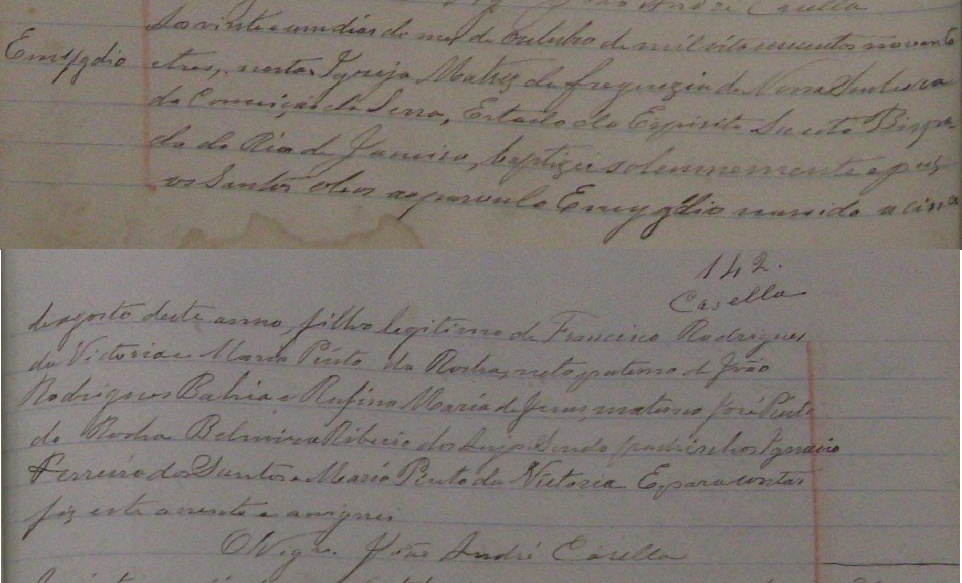 João André Casella
Aos vinte e um dias do mes de Outubro de mil oito centos noventa
Emygdio
e tres, nesta Igreja Matriz da freguezia de Nossa Senhora
da Conceição da Serra, Estado do Espirito Santo Bispa-
do do Rio de Janeiro, baptizei solemnemente e puz
os Santos oleos ao parvulo Emygdio nascido a cinco
142.
Casella
de agosto deste anno, filho legitimo de Francisco Rodrigues
da Victoria e Maria Pinto da Rocha, neto paterno de João
Rodrigues Bahia e Rufina Maria de Jesus, materno José Pinto
da Rocha Belmira Ribeiro dos Anjos. Sendo padrinhos Ignacio
Ferreira dos Santos e Maria Pinto da Victoria. E para constar
fiz este assento e assignei
O Vigro. João André Casella